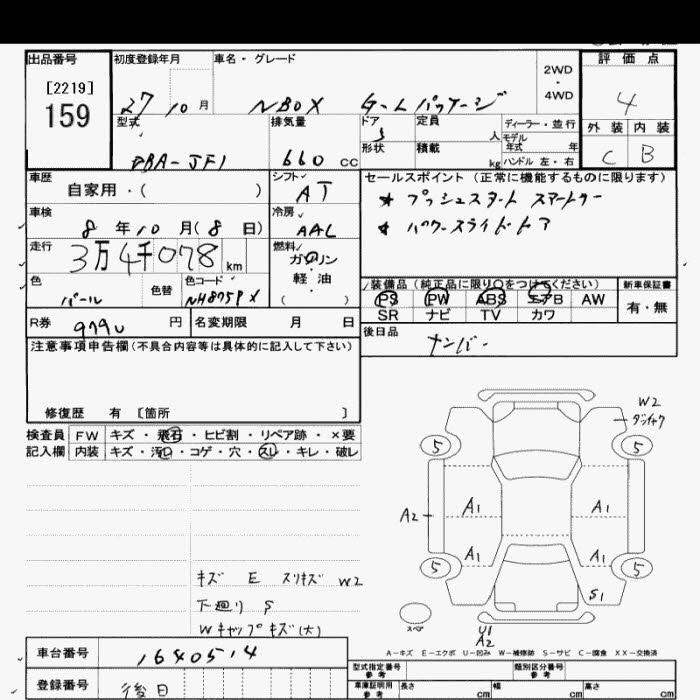 出品番号 初度登録年月 車名・グレード 評価点
[2219]
159
27 10月 NBOX G-Lパッケージ 2WD・4WD 4
型式 排気量 ドア 定員 人 ディーラー・並行 外装 内装
DBA-JF1 660 cc 形状 積載 kg モデル年式 年 ハンドル 左・右 C B
車歴 シフト セールスポイント(正常に機能するものに限ります)
自家用・( ) AT プッシュスタート スマートキー
車検 冷房 パワースライドドア
8年10月(8日) AAC
走行 燃料
3万4千078km ガソリン・軽油
色 色替 色コード 装備品(純正品に限り○をつけてください) 新車保証書
パール NH875P X PS PW ABS エアB AW 有・無
SR ナビ TV カワ
R券 9790円 名変期限 月 日 後日品
ナンバー
注意事項申告欄(不具合内容等は具体的に記入して下さい)
修復歴 有 [箇所 ]
検査員 FW キズ・飛石・ヒビ割・リペア跡・×要
記入欄 内装 キズ・汚れ・コゲ・穴・スレ・キレ・破レ
W2
5 5
A1 A1
A2
A1 A1
5 5
S1
キズ E スリキズ W2
下廻り S
Wキャップキズ(大)
スペア
U1
A2
A-キズ E-エクボ U-凹み W-補修跡 S-サビ C-腐食 XX-交換済
車台番号 1640514
型式指定番号 参考 類別区分番号 参考
登録番号 後日
車庫証明用 参考 長さ cm 幅 cm 高さ cm